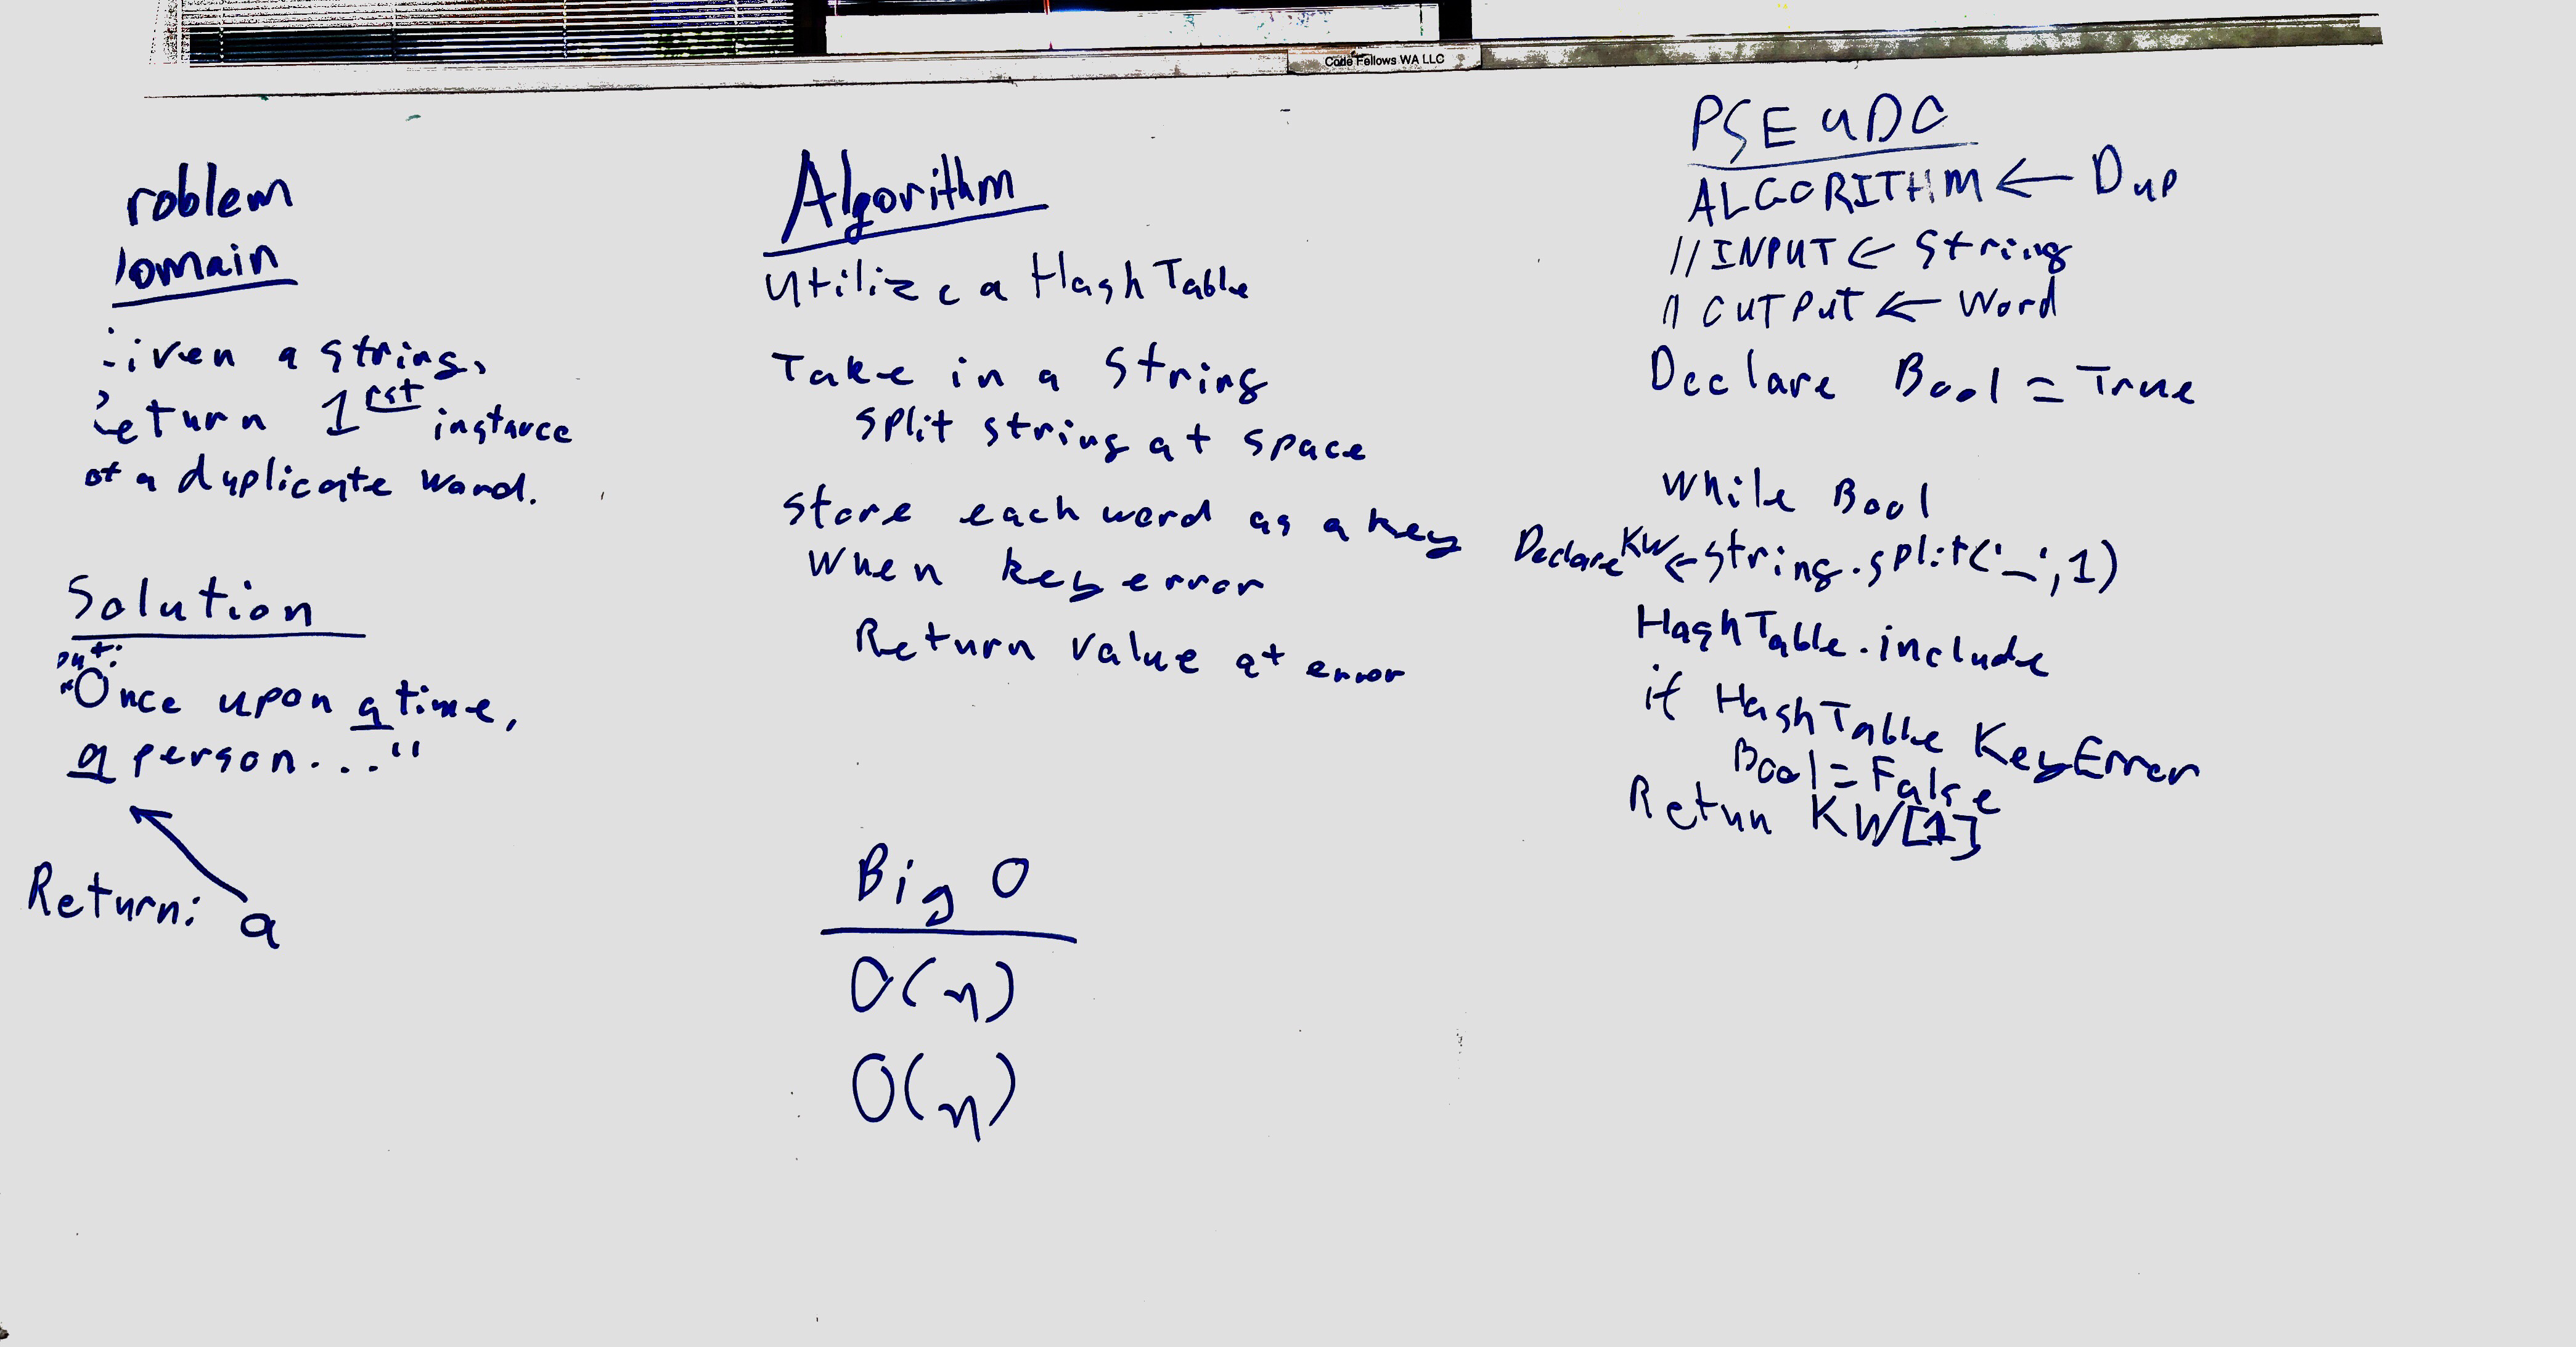 Code Fellows WA LLC
roblem
omain
iven a string,
Return 1rst instance
of a duplicate word.
Solution
put:
"Once upon a time,
a person..."
Return: a
Algorithm
utilize a HashTable
Take in a String
split string at space
store each word as a key
when key error
Return value at error
Big O
O(n)
O(n)
PSEUDO
ALGORITHM ← Dup
// INPUT ← String
// OUTPUT ← Word
Declare Bool = True
While Bool
Declare KW ← string.split('_',1)
HashTable.include
if HashTable KeyError
Bool = False
Retun KW[1]